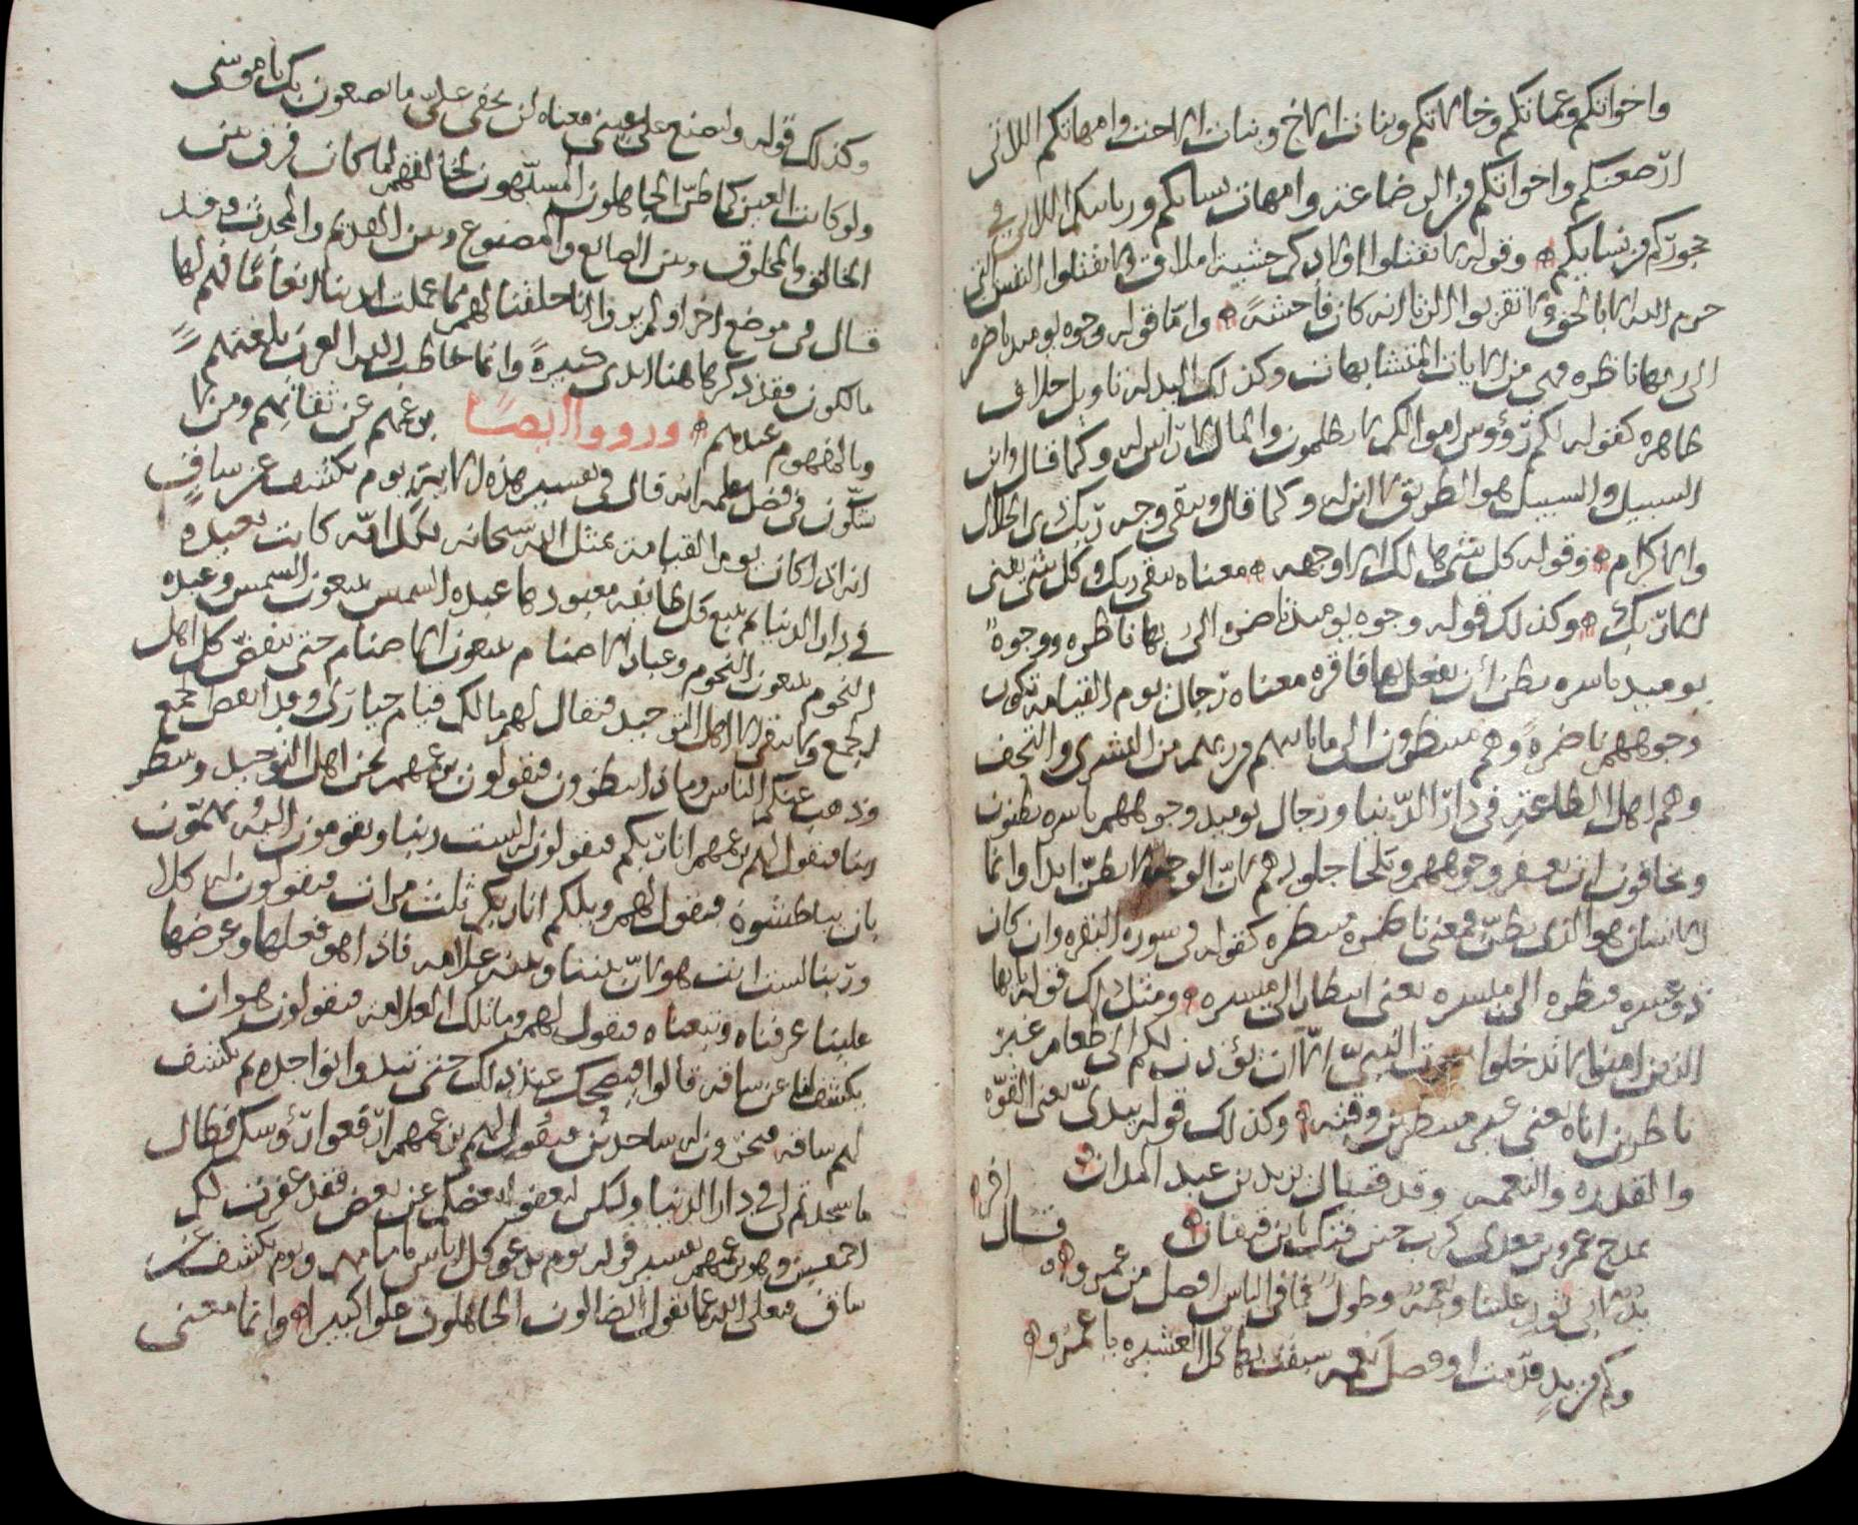 واخواتكم وعماتكم وخالاتكم وبنات الاخ وبنات الاخت وامهاتكم اللاتي
ارضعنكم واخواتكم من الرضاعة وامهات نسائكم وربائبكم اللاتي في
حجوركم من نسائكم وقوله لا تقتلوا اولادكم خشية املاق ولا تقتلوا النفس التي
حرم الله الا بالحق ولا تقربوا الزنا انه كان فاحشة واما قوله وجوه يومئذ ناضره
الى ربها ناظره فهي من الايات المتشابهات وكذلك البدله تاويل خلاف
ظاهره كقوله لكم رؤوس اموالكم لا تظلمون والمال لا راس له وكما قال وابن
السبيل والسبيل هو الطريق لا ابن له وكما قال ويبقى وجه ربك ذي الجلال
والاكرام وقوله كل شي هالك الا وجهه معناه يبقى ربك وكل شي يفنى
الا ربك وكذلك قوله وجوه يومئذ ناضره الى ربها ناظره ووجوه
يوميذ باسره تظن ان يفعل بها فاقره معناه رجال يوم القيامة تكون
وجوههم ناضرة وهم منتظرون الى ما ياتيهم من ربهم من البشرى والتحف
وهم اهل الطاعة في دار الدنيا ورجال يوميذ وجوههم باسره يظنون
ويخافون ان وجوههم وتلحا جلودهم لان الوجوه لا تظن ابدا وانما
الانسان هو الذي يظن فمعنى ناظرة منتظره كقوله في سورة البقره وان كان
ذو عسره فنظره الى ميسره يعني انتظار الى ميسره ومثل ذلك قوله يا ايها
الذين امنوا لا تدخلوا بيوت النبي الا ان يؤذن لكم الى طعام غير
ناظرين اناه يعني غير منتظرين وقته وكذلك قوله بيدي يعني القوه
والقدره والنعمه وقد قال يزيد بن عبد المدان
يمدح عمرو بن معدي كرب حين فتك بابن قنقان قال
يد لابي ثور علينا ونعمة وطول فما في الناس افضل من عمرو
وكم من يد قدمت او فضل نعمه سبقت بها كل العشيره يا عمرو
وكذلك قوله ولتصنع على عيني معناه لن يخفى علي ما يصنعون بك يا موسى
ولو كانت العين كما ظن الجاهلون المشبهون لخالقهم لما كان فرق بين
الخالق والمخلوق وبين الصانع والمصنوع وبين القديم والمحدث وقد
قال في موضع اخر اولم يروا انا خلقنا لهم مما عملت ايدينا انعاما فهم لها
مالكون فقد ذكر هاهنا ايدي كثيرة وانما خاطب الله العرب بلغتهم
وبالمفهوم عندهم ورووا ايضا بزعمهم عن ثقاتهم ومن لا
يشكون في فضل علمه انه قال في تفسير هذه الاية يوم يكشف عن ساق
انه اذا كان يوم القيامة يمثل الله سبحانه لكل امه ما كانت تعبده
في دار الدنيا ثم يتبع كل طائفه معبودها عبده الشمس يتبعون الشمس وعبده
النجوم يتبعون النجوم وعباد الاصنام يتبعون الاصنام حتى ينفض كل اهل
الجمع ولا يبقى الا اهل التوحيد فيقال لهم ما لكم قيام حيارى وقد انفض الجمع
وذهب عنكم الناس وماذا تنتظرون فيقولون بزعمهم نحن اهل التوحيد وننتظر
ربنا فيقول لهم بزعمهم انا ربكم فيقولون له لست ربنا ويقومون اليه يهمون
بان يبطشوه فيقول لهم ويلكم انا ربكم ثلث مرات فيقولون له كلا
وربنا لست انت هو لان بيننا وبينه علامه فاذا هو فعلها وعرضها
علينا عرفناه وتبعناه فيقول لهم وما تلك العلامه فيقولون هو ان
يكشف لنا عن ساقه قالوا فيضحك عند ذلك حتى تبدوا نواجذه ثم يكشف
لهم ساقه فيخرون له ساجدين فيقول لهم بزعمهم ارفعوا رؤوسكم فطال
ما سجدتم لي في دار الدنيا ولكن ليعفو بعضكم عن بعض فقد غفرت لكم
اجمعين وهو بزعمهم تفسير قوله يوم ندعو كل اناس بامامهم ويوم يكشف عن
ساق فتعالى الله عما يقول الضالون الجاهلون علوا كبيرا وانما معنى